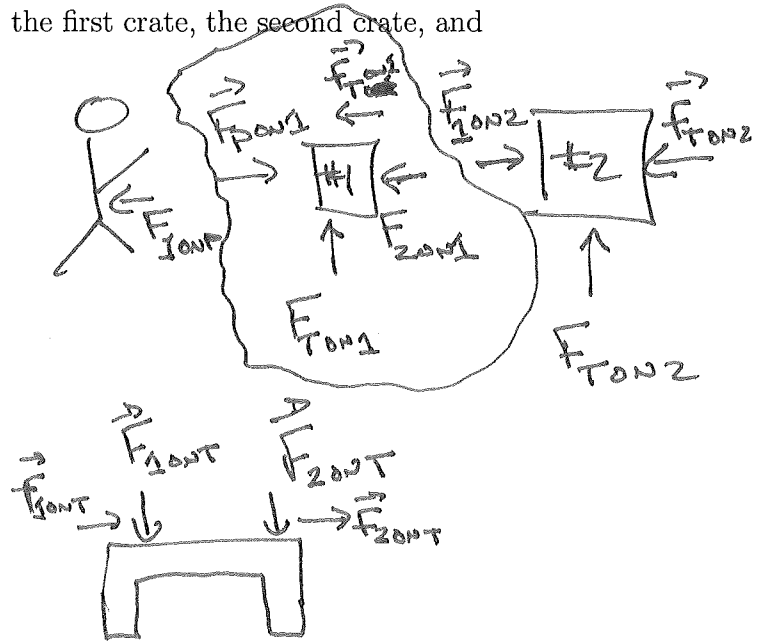 the first crate, the second crate, and
f T on 1
F P on 1
F 1 on 2
f T on 2
#1
#2
F 1 on P
F 2 on 1
F T on 1
F T on 2
F 1 on T
F 2 on T
f 1 on T
f 2 on T